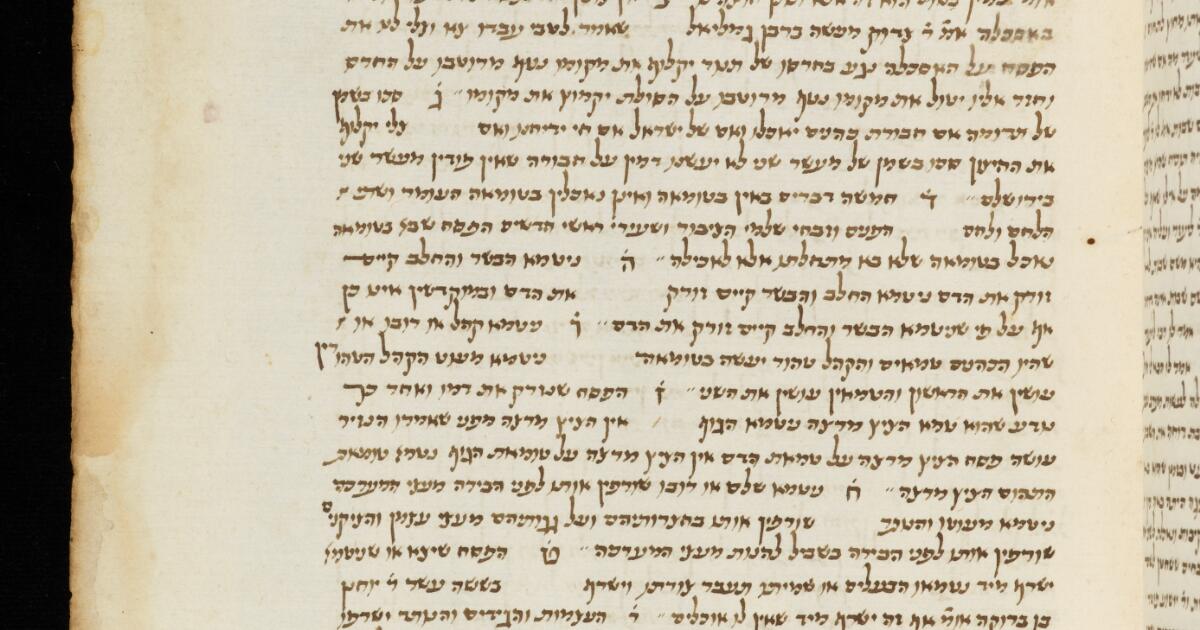 באסכלה אמ' ר' צדוק מעשה ברבן גמליאל שאמר לטבי עבדו צא וצלי לנו את
הפסח על האסכלה נגע בחרסו של תנור יקלוף את מקומו נטף מרוטבו על החרס
וחזר אליו יטול את מקומו נטף מרוטבו על הסולת יקמוץ את מקומו ג סכו בשמן
של תרומה אם חבורת כהנים יאכלו ואם של ישראל אם חי ידיחנו ואם צלי יקלוף
את החיצון סכו בשמן של מעשר שני לא יעשנו דמין על חבורה שאין פודין מעשר שני
בירושלם ד חמשה דברים באין בטומאה ואינן נאכלין בטומאה העומר ושתי
הלחם ולחם הפנים וזבחי שלמי הציבור ושעירי ראשי חדשים הפסח שבא בטומאה
נאכל בטומאה שלא בא מתחלתו אלא לאכילה ה ניטמא הבשר והחלב קיים
זורק את הדם ניטמא החלב והבשר קיים זורק את הדם ובמוקדשין אינו כן
אף על פי שניטמא הבשר והחלב קיים זורק את הדם ו ניטמא קהל או רובו או
שהיו הכהנים טמאים והקהל טהור יעשה בטומאה ניטמא מעוט הקהל הטהורין
עושין את הראשון והטמאין עושין את השני ז הפסח שנזרק את דמו ואחר כך
נודע שהוא טמא הציץ מרצה ניטמא הגוף אין הציץ מרצה מפני שאמרו הנזיר
עושה פסח הציץ מרצה על טמאת הדם אין הציץ מרצה על טומאת הגוף ניטמא טומאת
התהום הציץ מרצה ח ניטמא שלם או רובו שורפין אותו לפני הבירה מעצי המערכה
ניטמא מעוטו והנותר שורפין אותו בחצרותיהם ועל גגותיהם מעצי עצמן והציקנים
שורפין אותו לפני הבירה בשביל להנות מעצי המערכה ט הפסח שיצא או שניטמא
ישרף מיד נטמאו הבעלים או שמיתו תעבר צורתו וישרף בששה עשר ר' יוחנן
בן ברוקה אומ' אף זה ישרף מיד שאין לו אוכלים י העצמות והגידים והנותר ישרפו